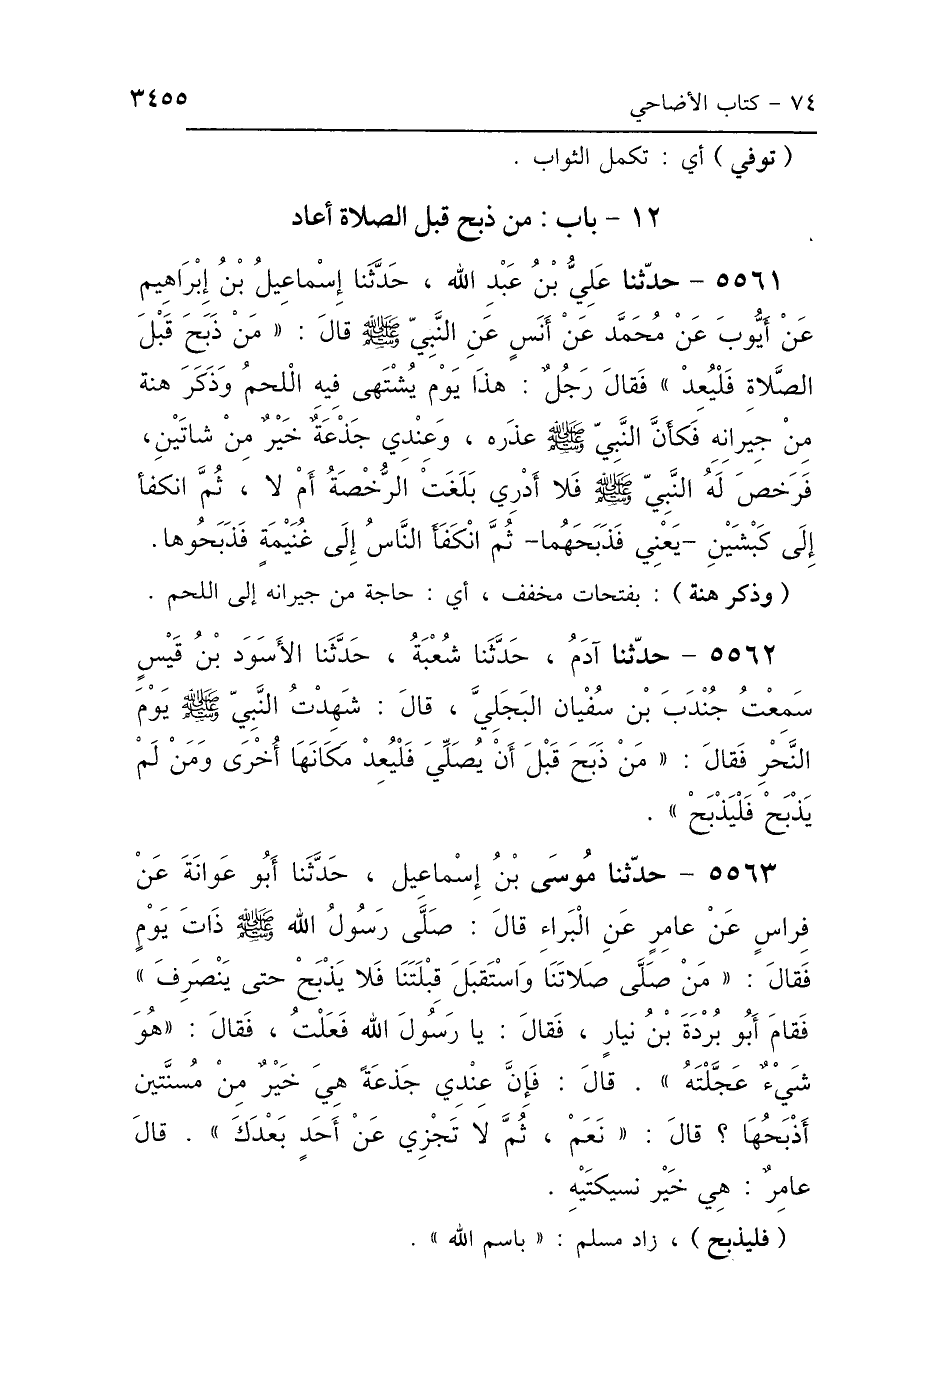 ٧٤ - كتاب الأضاحي ٣٤٥٥
( توفي ) أي : تكمل الثواب .
١٢ - باب : من ذبح قبل الصلاة أعاد
٥٥٦١ - حدّثنا عَلَيُّ بْنُ عَبْدِ الله ، حَدَّثَنا إسْماعِيلُ بْنُ إبْرَاهِيمِ
عَنْ أَيُّوبَ عَنْ مُحَمَّد عَنْ أَنَسٍ عَنِ النَّبِيِّ ﷺ قالَ : « مَنْ ذَبَحَ قَبْلَ
الصَّلَاةِ فَلْيُعِدْ » فَقالَ رَجُلٌ : هذَا يَوْم يُشْتَهى فِيهِ الْلَحمُ وَذَكَرَ هنة
مِنْ جيرانِهِ فَكأَنَّ النَّبِيّ ﷺ عذَره ، وَعِنْدِي جَذْعَةٌ خَيْرٌ مِنْ شاتَيْنِ،
فَرَخصَ لَهُ النَّبِيّ ﷺ فَلا أدْرِي بَلَغَتْ الرُّخْصَةُ أَمْ لا ، ثُمَّ انكفأ
إلَى كَبْشَيْنِ -يَعْنِي فَذَبَحَهُما- ثُمَّ انْكَفَأَ النَّاسُ إلَى غُنَيْمَةٍ فَذَبَحُوها.
( وذكر هنة ) : بفتحات مخفف ، أي : حاجة من جيرانه إلى اللحم .
٥٥٦٢ - حدّثنا آدَمُ ، حَدَّثَنا شُعْبَةُ ، حَدَّثَنا الأَسوَد بْنُ قَيْسٍ
سَمِعْتُ جُنْدَبَ بْن سفْيان البَجَليَّ ، قالَ : شَهِدْتُ النَّبِيّ ﷺ يَوْمَ
النَّحْرِ فَقالَ : « مَنْ ذَبَحَ قَبْلَ أَنْ يُصَلِّيَ فَلْيُعِدْ مَكانَهَا أُخْرَى وَمَنْ لَمْ
يَذْبَحْ فَلْيَذْبَحْ » .
٥٥٦٣ - حدّثنا مُوسَى بْنُ إسْماعِيل ، حَدَّثَنا أَبُو عَوانَةَ عَنْ
فِراسٍ عَنْ عامِرٍ عَنِ الْبَراءِ قالَ : صَلَّى رَسُولُ الله ﷺ ذَاتَ يَوْمٍ
فَقالَ : « مَنْ صَلَّى صَلاتَنَا وَاسْتَقبَلَ قِبْلَتَنَا فَلا يَذْبَحْ حتى يَنْصَرِفَ »
فَقامَ أَبُو بُرْدَةَ بْنُ نيارٍ ، فَقالَ : يا رَسُولَ الله فَعَلْتُ ، فَقالَ : «هُوَ
شَيْءٌ عَجَّلْتَهُ » . قالَ : فَإنَّ عِنْدِي جَذعَةً هِيَ خَيْرٌ مِنْ مُسِنَّتَين
أَذْبَحُهَا ؟ قالَ : « نَعَمْ ، ثُمَّ لا تَجْزِي عَنْ أَحَدٍ بَعْدَكَ » . قالَ
عامِرٌ : هِي خَيْر نسِيكتَيْهِ .
( فليذبح ) ، زاد مسلم : « باسم الله » .